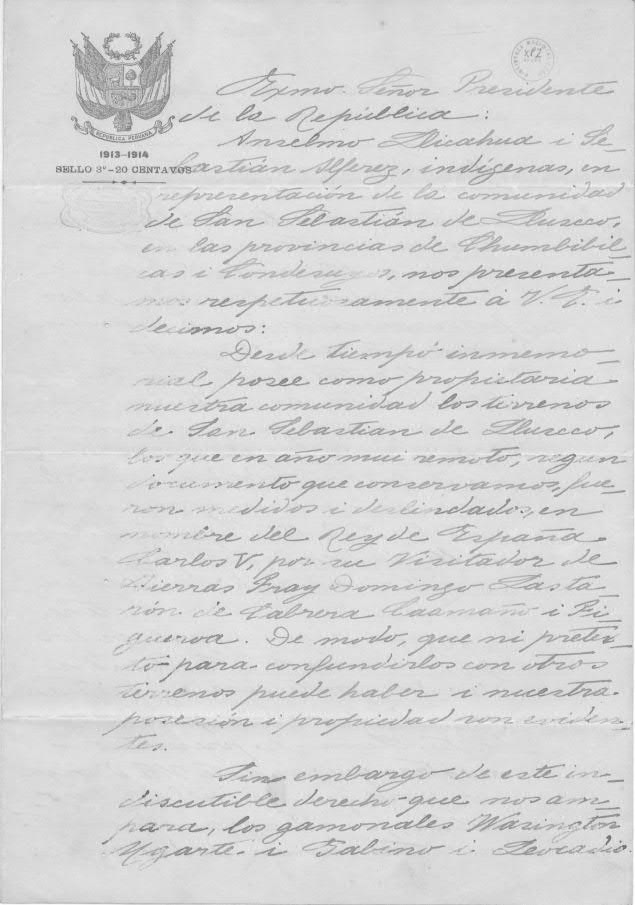 REPUBLICA PERUANA
1913-1914
SELLO 3º - 20 CENTAVOS
Exmo. Señor Presidente
de la República:
Anselmo Llicahua i Se-
bastián Alferez, indígenas, en
representación de la comunidad
de San Sebastián de Llusco,
en las provincias de Chumbibil-
cas i Condesuyos, nos presenta-
mos respetuosamente á V. E. i
decimos:
Desde tiempo inmemo-
rial posee como propietaria
nuestra comunidad los terrenos
de San Sebastian de Llusco,
los que en año mui remoto, segun
documento que conservamos, fue-
ron medidos i deslindados, en
nombre del Rey de España
Carlos V, por su Visitador de
Tierras Fray Domingo
de Cabrera Caamaño i Fi-
gueroa. De modo, que ni pretex-
to para confundirlos con otros
terrenos puede haber i nuestra
posesión i propiedad son eviden-
tes.
Sin embargo de este in-
discutible derecho que nos am-
para, los gamonales Wasington
Ugarte i Gabino i Leocadio